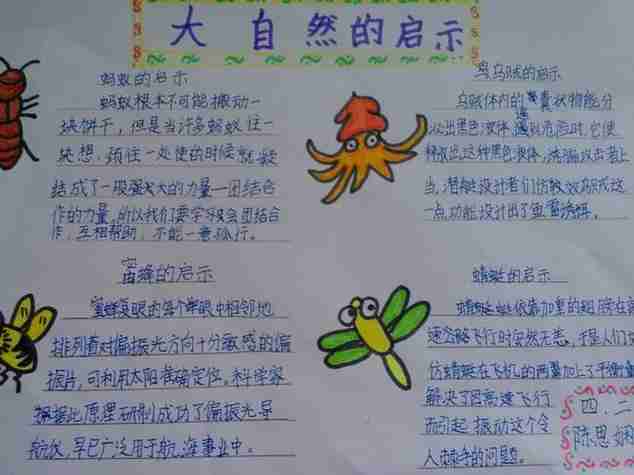 大自然的启示
蚂蚁的启示
蚂蚁根本不可能搬动一
块饼干，但是当许多蚂蚁往一
块想，预往一处使的时候就凝
结成了一股强大大的力量—团结合
作的力量。所以我们要学习会团结合
作，互相帮助，不能一意孤行。
乌贼的启示
乌贼体内的囊状物能分
以出黑色液体，遇到危险时，它便
释放出这种黑色液体，诱骗以击者上
当，潜艇设计者们仿效乌贼这
一点功能设计出了鱼雷诱饵。
蜜蜂的启示
蜜蜂复眼的每个单眼中相邻地
排列着对偏振光方向十分敏感的偏
振片，可利用太阳准确定位。科学家
据此原理研制成功了偏振光导
航仪，早已广泛用于航海事业中。
蜻蜓的启示
蜻蜓依靠加重的翅膀在高
速飞行时安然无恙，于是人们
仿蜻蜓在飞机的两翼加上了平衡重
解决了因高速飞行
而引起振动这个令
人棘手的问题。
四.二
陈思娴